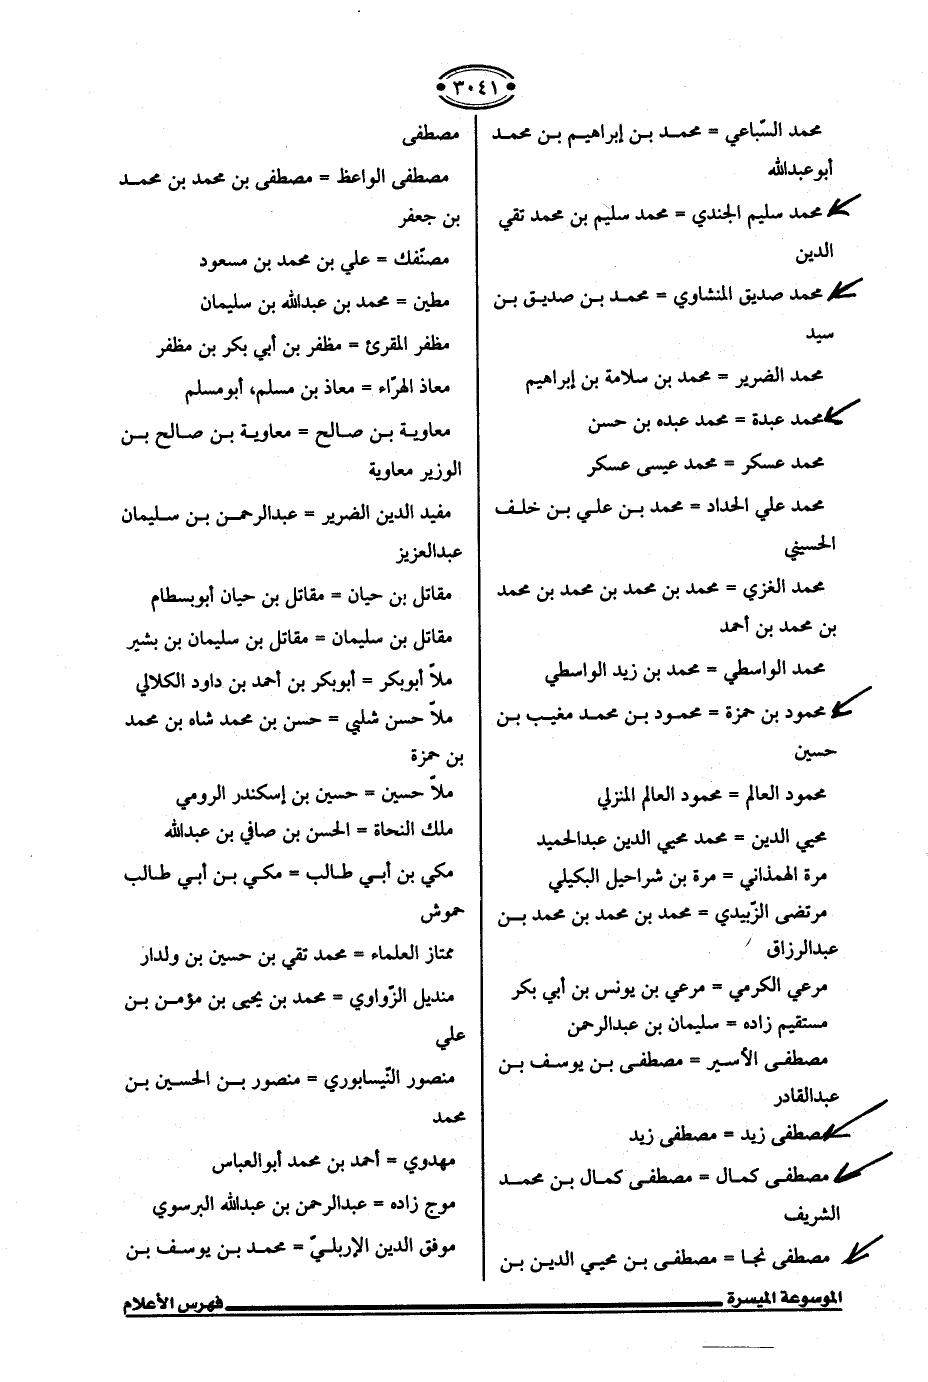 ٣٠٤١
محمد السّباعي = محمد بن إبراهيم بن محمد
أبوعبدالله
محمد سليم الجندي = محمد سليم بن محمد تقي
الدين
محمد صديق المنشاوي = محمد بن صديق بن
سيد
محمد الضرير = محمد بن سلامة بن إبراهيم
محمد عبدة = محمد عبده بن حسن
محمد عسكر = محمد عيسى عسكر
محمد علي الحداد = محمد بن علي بن خلف
الحسيني
محمد الغزي = محمد بن محمد بن محمد بن محمد
بن محمد بن أحمد
محمد الواسطي = محمد بن زيد الواسطي
محمود بن حمزة = محمود بن محمد مغيب بن
حسين
محمود العالم = محمود العالم المنزلي
محيي الدين = محمد محيي الدين عبدالحميد
مرة الهمذاني = مرة بن شراحيل البكيلي
مرتضى الزّبيدي = محمد بن محمد بن محمد بن
عبدالرزاق
مرعي الكرمي = مرعي بن يونس بن أبي بكر
مستقيم زاده = سليمان بن عبدالرحمن
مصطفى الأسير = مصطفى بن يوسف بن
عبدالقادر
مصطفى زيد = مصطفى زيد
مصطفى كمال = مصطفى كمال بن محمد
الشريف
مصطفى نجا = مصطفى بن محيي الدين بن
مصطفى
مصطفى الواعظ = مصطفى بن محمد بن محمد
بن جعفر
مصنّفك = علي بن محمد بن مسعود
مطين = محمد بن عبدالله بن سليمان
مظفر المقرئ = مظفر بن أبي بكر بن مظفر
معاذ الهرّاء = معاذ بن مسلم، أبومسلم
معاوية بن صالح = معاوية بن صالح بن
الوزير معاوية
مفيد الدين الضرير = عبدالرحمن بن سليمان
عبدالعزيز
مقاتل بن حيان = مقاتل بن حيان أبوبسطام
مقاتل بن سليمان = مقاتل بن سليمان بن بشير
ملاّ أبوبكر = أبوبكر بن أحمد بن داود الكلالي
ملاّ حسن شلبي = حسن بن محمد شاه بن محمد
بن حمزة
ملاّ حسين = حسين بن إسكندر الرومي
ملك النحاة = الحسن بن صافي بن عبدالله
مكي بن أبي طالب = مكي بن أبي طالب
حموش
ممتاز العلماء = محمد تقي بن حسين بن ولدار
منديل الزّواوي = محمد بن يحيى بن مؤمن بن
علي
منصور النّيسابوري = منصور بن الحسين بن
محمد
مهدوي = أحمد بن محمد أبوالعباس
موج زاده = عبدالرحمن بن عبدالله البرسوي
موفق الدين الإربليّ = محمد بن يوسف بن
الموسوعة الميسرة
فهرس الأعلام